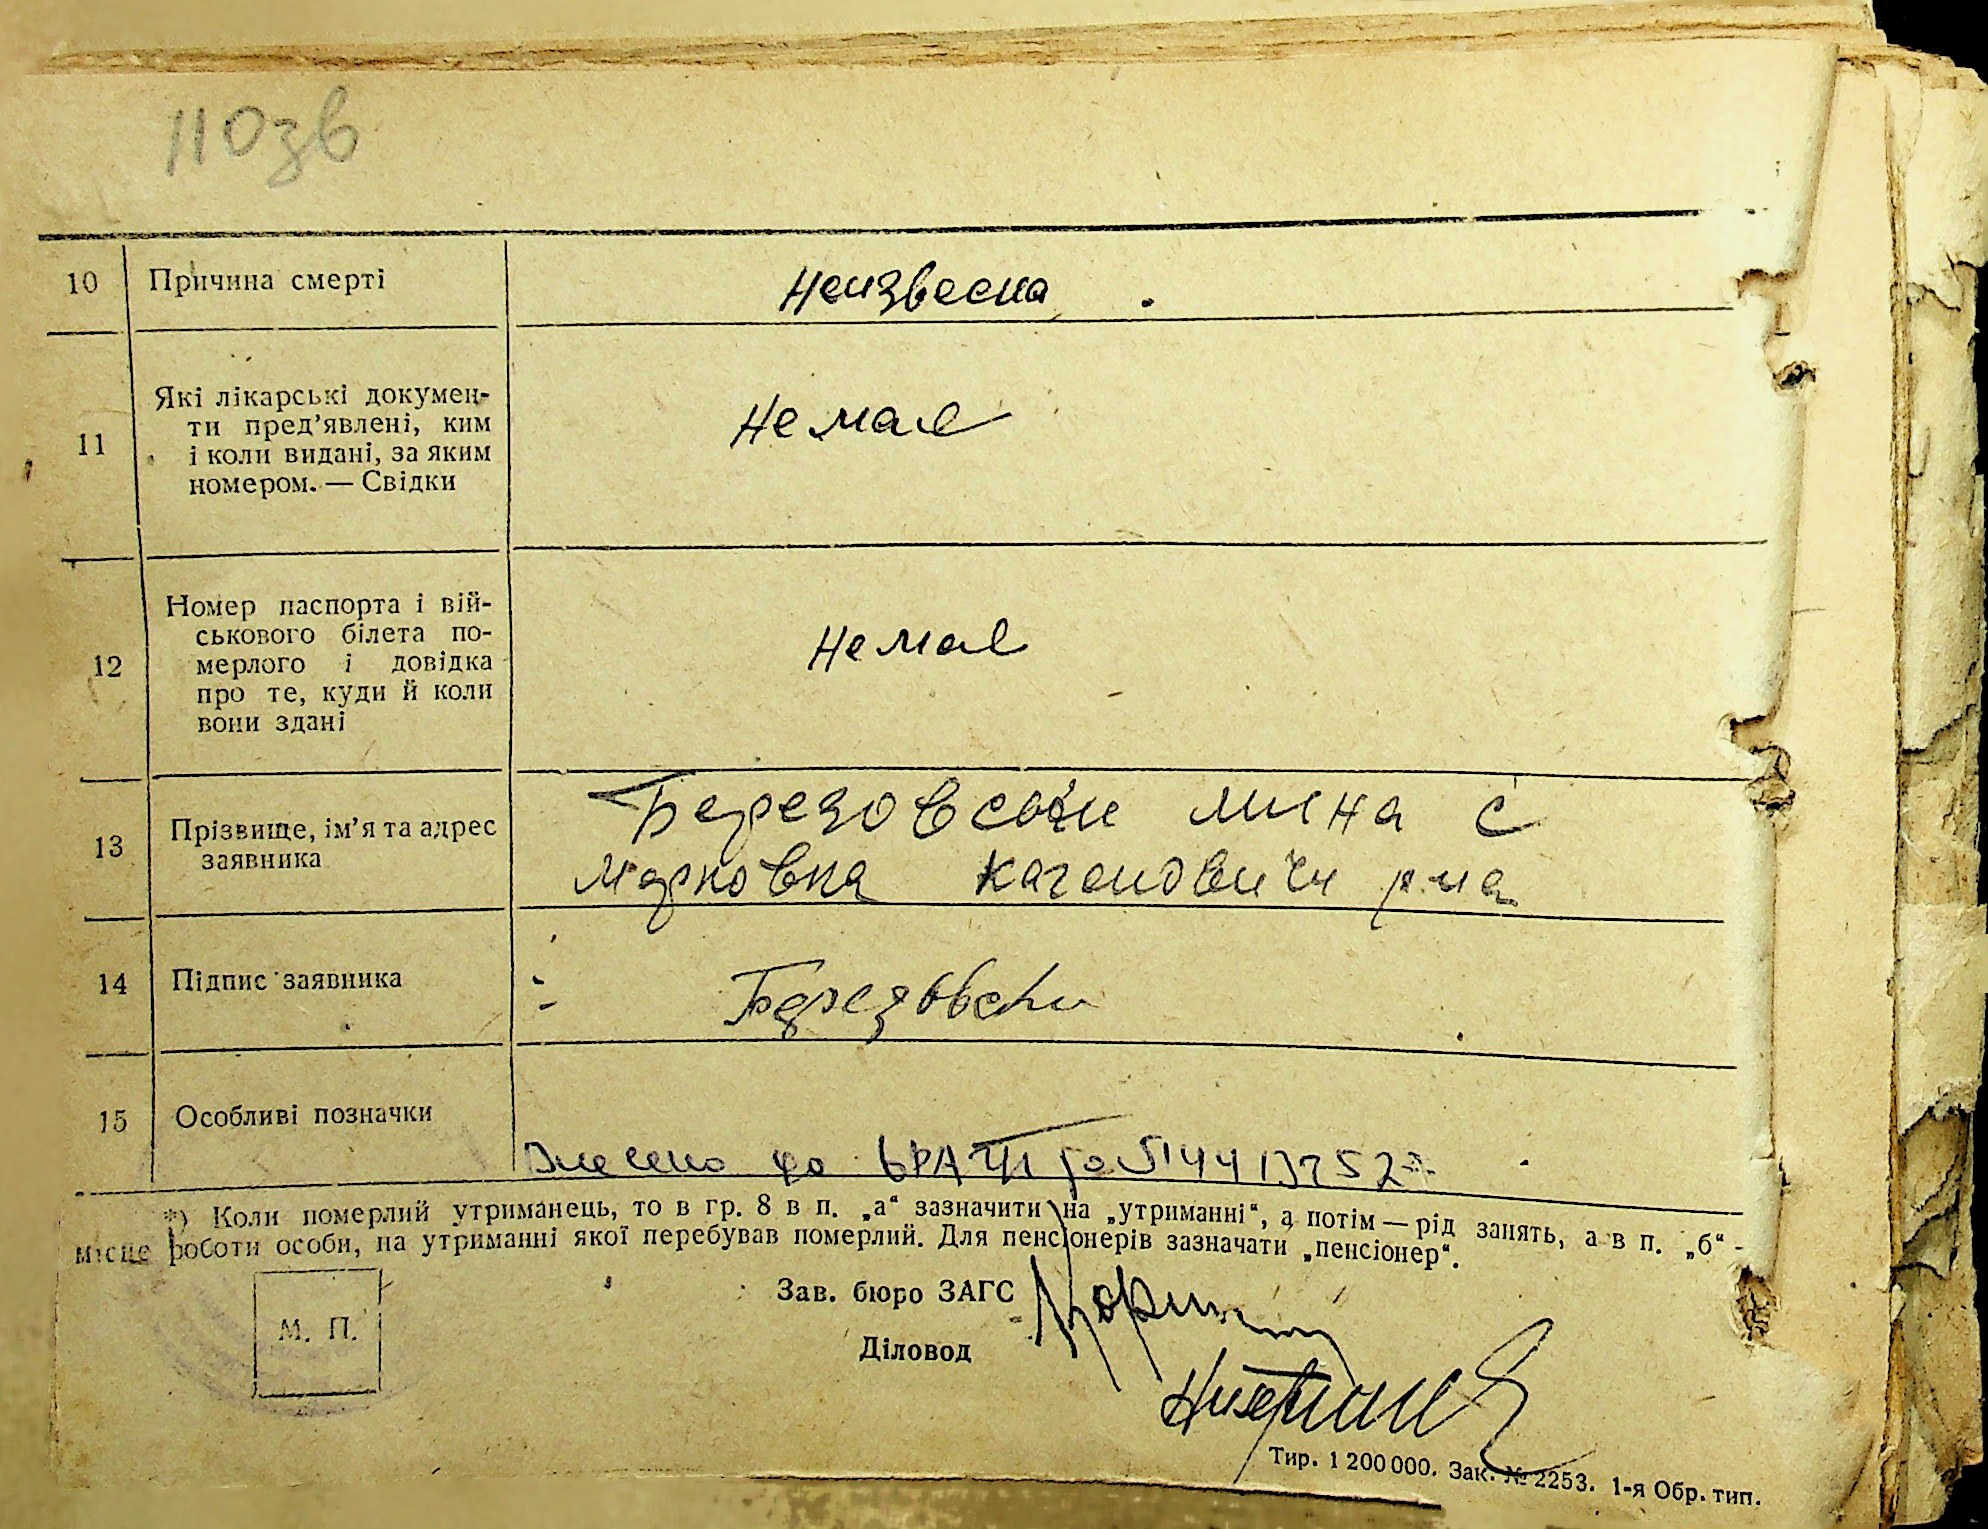 110зв
10 Причина смерті Неизвесна.
Які лікарські докумен-
ти пред’явлені, ким
11 і коли видані, за яким Не має
номером. — Свідки
Номер паспорта і вій-
ськового білета по-
12 мерлого і довідка Не має
про те, куди й коли
вони здані
13 Прізвище, ім’я та адрес Березовськи Мина с
заявника Марковка Кагановичи р-на
14 Підпис заявника Березовски
15 Особливі позначки
Внесено до ДРАЦС
*) Коли померлий утриманець, то в гр. 8 в п. „а“ зазначити на „утриманні“, а потім — рід занять, а в п. „б“ -
місце роботи особи, на утриманні якої перебував померлий. Для пенсіонерів зазначати „пенсіонер“.
Зав. бюро ЗАГС
М. П.
Діловод
Тир. 1 200 000. Зак. № 2253. 1-я Обр. тип.